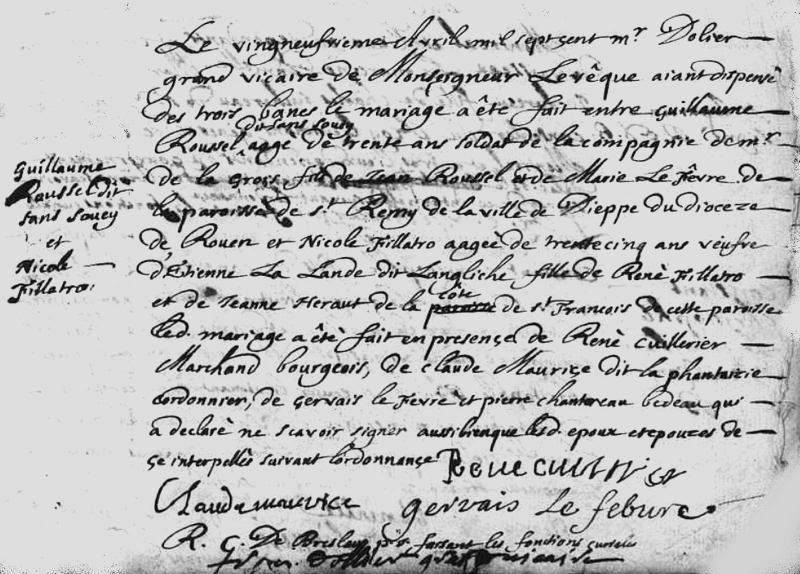 Guillaume
Roussel dit
sans soucy
et
Nicole
Fillatro.
Le vingneufvieme Avril mil sept cent mr. Dolier
grand vicaire de Monseigneur Levêque aiant dispensé
des trois bancs le mariage a été fait entre Guillaume
dit sans soucy
Roussel aagé de trente ans soldat de la compagnie de mr.
de la Grois fils de Jean Roussel et de Marie Le Fêvre de
la paroisse de st. Remy de la ville de Dieppe du dioceze
de Rouen et Nicole Fillatro aagée de trente cinq ans veufve
d'Etienne La Lande dit Langliche fille de René Fillatro
côte
et de Jeanne Heraut de la paroisse de st. Francois de cette paroisse
led. mariage a été fait en presençe de René Cuillerier
Marchand bourgeois, de Claude Mauriçe dit la phantaizie
Cordonnier, de Gervais le Fevre et pierre chantereau bedeau qui
a declaré ne scavoir signer aussi bien que lesd. epoux et epouzes de
çe interpellés suivant l'ordonnançe Rene Cuillerier
Claude maurice gervais Le febure
R. C. De Breslay ptre. faisant les fonctions curiales